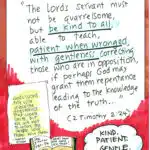 "The Lords servant must
not be quarrelsome,
but be kind to all,
able to teach,
patient when wronged,
with gentleness correcting
those who are in opposition,
if perhaps God may
grant them repentance
leading to the knowledge
of the truth..."
(2 Timothy 2:24)
KIND.
PATIENT.
GENTLE.